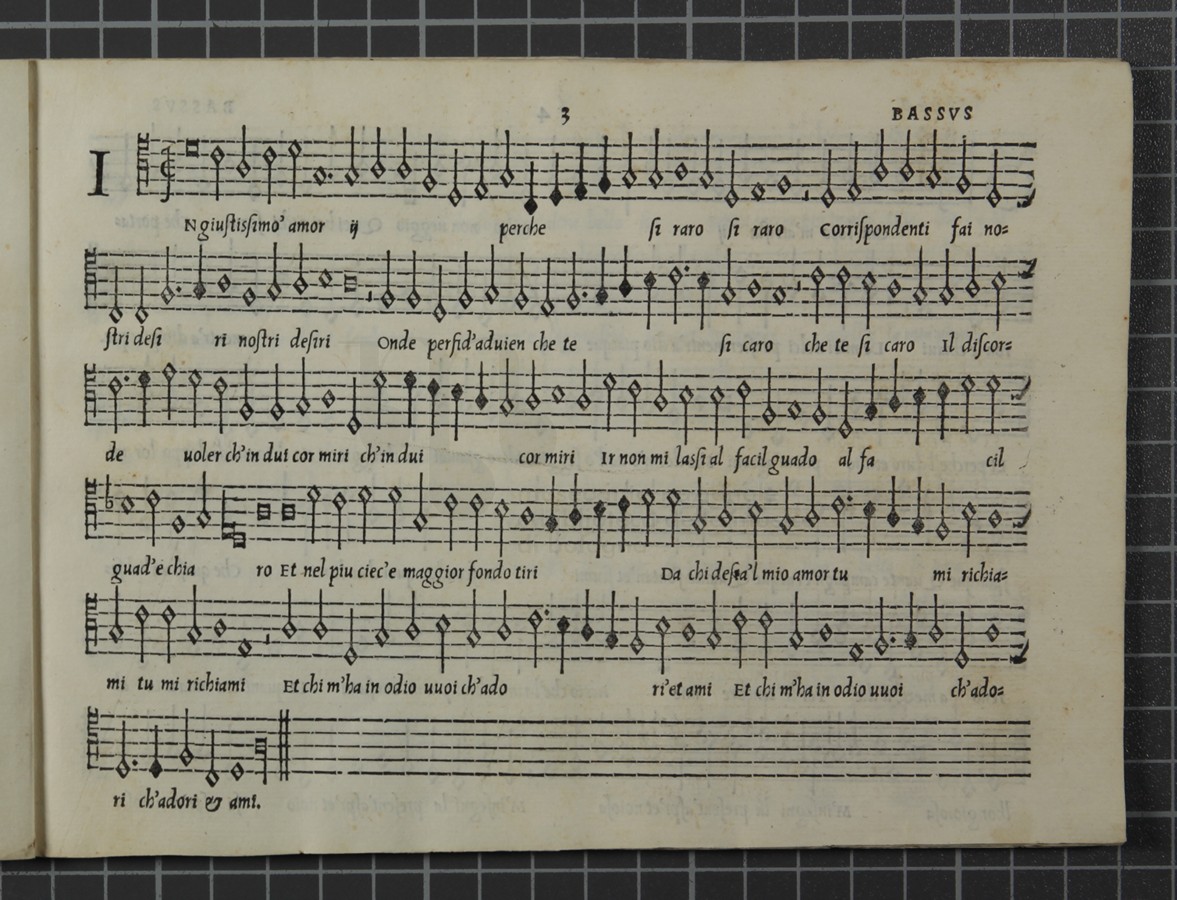 3 BASSVS
I
N giuſtisſimo' amor ij perche ſi raro ſi raro Corriſpondenti fai no=
ſtri deſi ri noſtri deſiri Onde perfid'aduien che te ſi caro che te ſi caro Il diſcor=
de uoler ch'in dui cor miri ch'in dui cor miri Ir non mi lasſi al facil guado al fa cil
guad'e chia ro Et nel piu ciec'e maggior fondo tiri Da chi deſia'l mio amor tu mi richia=
mi tu mi richiami Et chi m'ha in odio uuoi ch'ado ri'et ami Et chi m'ha in odio uuoi ch'ado=
ri ch'adori & ami.